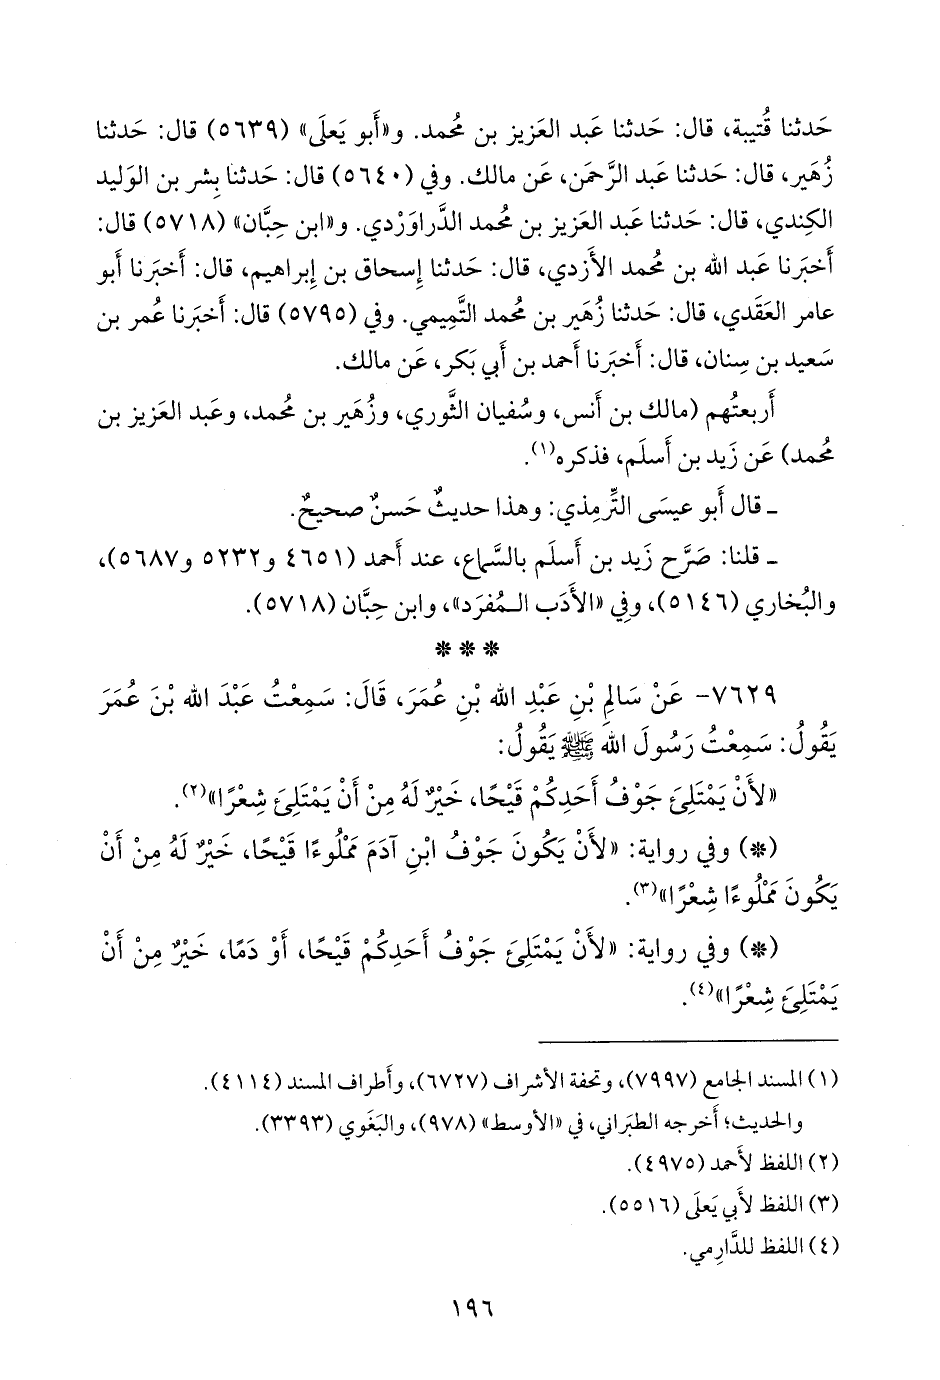 حَدثنا قُتيبة، قال: حَدثنا عَبد العَزيز بن مُحمد. و«أَبو يَعلَى» (٥٦٣٩) قال: حَدثنا
زُهَير، قال: حَدثنا عَبد الرَّحمَن، عَن مالك. وفي (٥٦٤٠) قال: حَدثنا بِشر بن الوَليد
الكِندي، قال: حَدثنا عَبد العَزيز بن مُحمد الدَّراوَرْدي. و«ابن حِبَّان» (٥٧١٨) قال:
أَخبَرنا عَبد الله بن مُحمد الأَزدي، قال: حَدثنا إِسحاق بن إِبراهيم، قال: أَخبَرنا أَبو
عامر العَقَدي، قال: حَدثنا زُهَير بن مُحمد التَّمِيمي. وفي (٥٧٩٥) قال: أَخبَرنا عُمر بن
سَعيد بن سِنان، قال: أَخبَرنا أَحمد بن أَبي بَكر، عَن مالك.
أَربعتُهم (مالك بن أَنس، وسُفيان الثَّوري، وزُهَير بن مُحمد، وعَبد العَزيز بن
مُحمد) عَن زَيد بن أَسلَم، فذكره(١).
ـ قال أَبو عيسَى التِّرمِذي: وهذا حديثٌ حَسنٌ صحيحٌ.
ـ قلنا: صَرَّح زَيد بن أَسلَم بالسَّماع، عند أَحمد (٤٦٥١ و٥٢٣٢ و٥٦٨٧)،
والبُخاري (٥١٤٦)، وفِي «الأَدَب الـمُفرَد»، وابن حِبَّان (٥٧١٨).
* * *
٧٦٢٩- عَنْ سَالِمِ بْنِ عَبْدِ الله بْنِ عُمَرَ، قَالَ: سَمِعْتُ عَبْدَ الله بْنَ عُمَرَ
يَقُولُ: سَمِعْتُ رَسُولَ الله ﷺ يَقُولُ:
«لأَنْ يَمْتَلِئَ جَوْفُ أَحَدِكُمْ قَيْحًا، خَيْرٌ لَهُ مِنْ أَنْ يَمْتَلِئَ شِعْرًا»(٢).
(*) وفي رواية: «لأَنْ يَكُونَ جَوْفُ ابْنِ آدَمَ مَمْلُوءًا قَيْحًا، خَيْرٌ لَهُ مِنْ أَنْ
يَكُونَ مَمْلُوءًا شِعْرًا»(٣).
(*) وفي رواية: «لأَنْ يَمْتَلِئَ جَوْفُ أَحَدِكُمْ قَيْحًا، أَوْ دَمًا، خَيْرٌ مِنْ أَنْ
يَمْتَلِئَ شِعْرًا»(٤).
(١) المسند الجامع (٧٩٩٧)، وتحفة الأشراف (٦٧٢٧)، وأَطراف المسند (٤١١٤).
والحديث؛ أَخرجه الطبَراني، في «الأَوسط» (٩٧٨)، والبَغَوي (٣٣٩٣).
(٢) اللفظ لأَحمد (٤٩٧٥).
(٣) اللفظ لأَبي يَعلَى (٥٥١٦).
(٤) اللفظ للدَّارِمي.
١٩٦